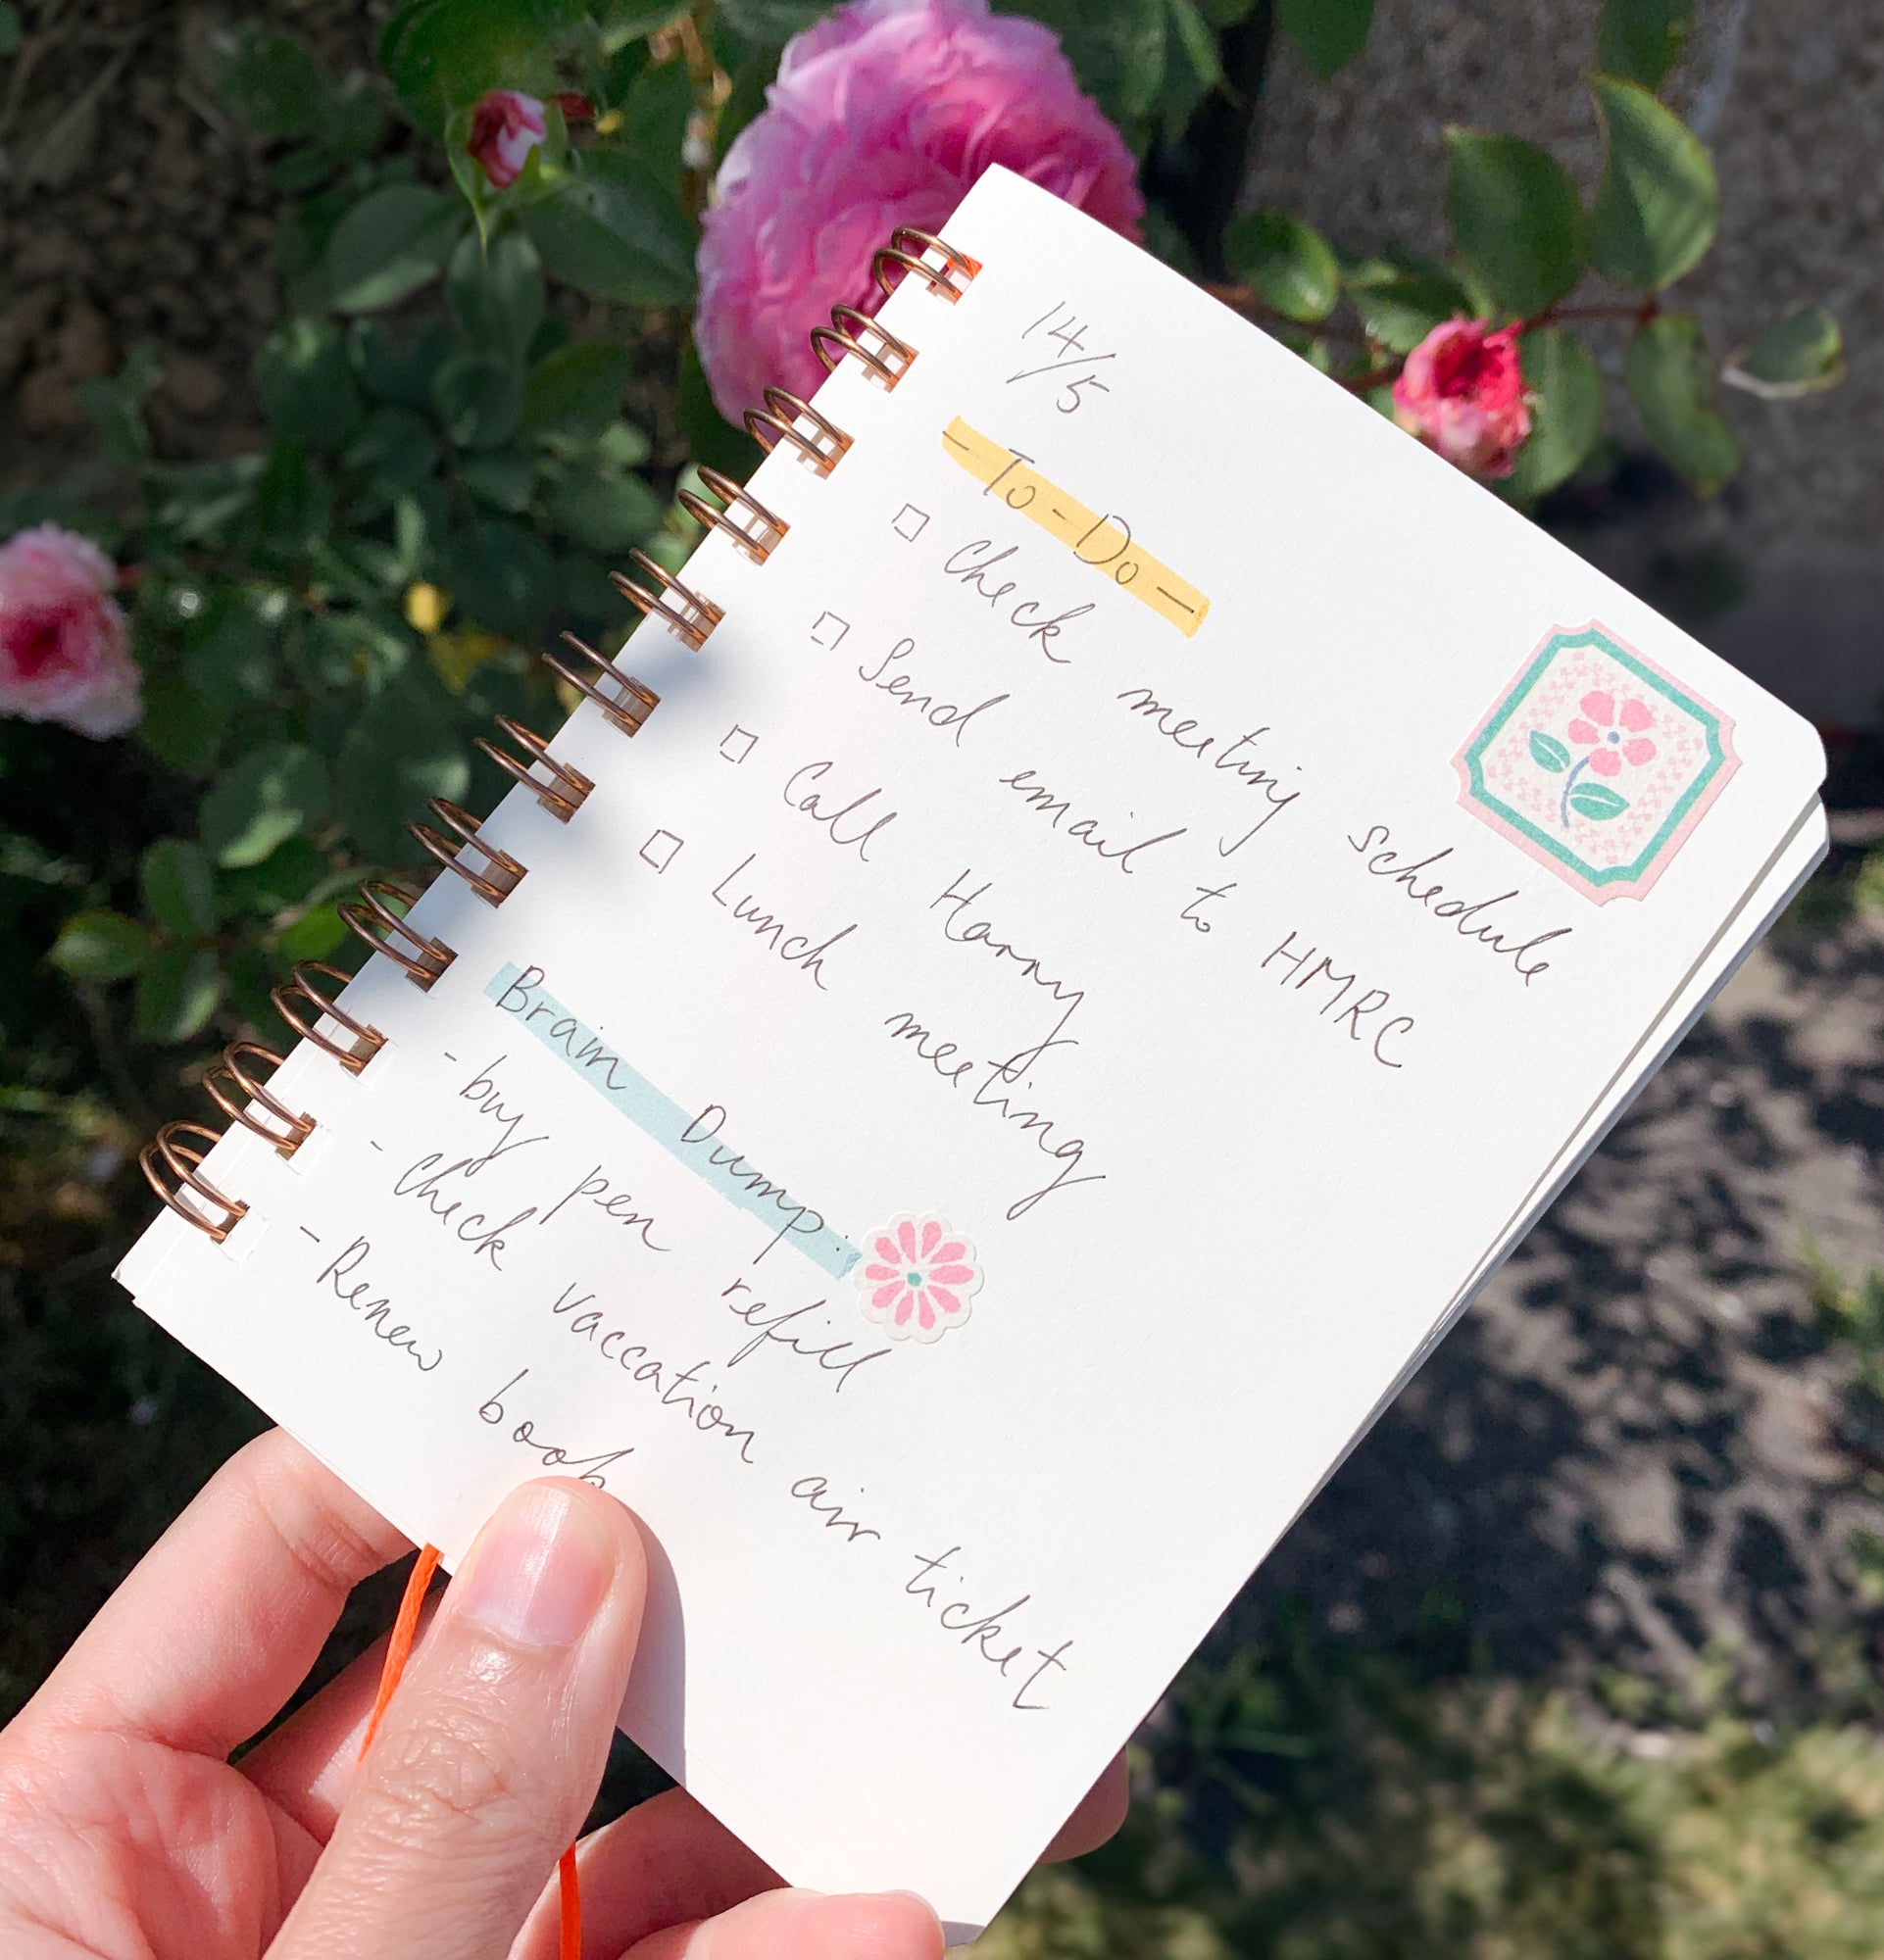 14/5
- To-Do -
□ Check meeting schedule
□ Send email to HMRC
□ Call Harry
□ Lunch meeting
Brain Dump:
- buy pen refill
- Check vaccation air ticket
- Renew book